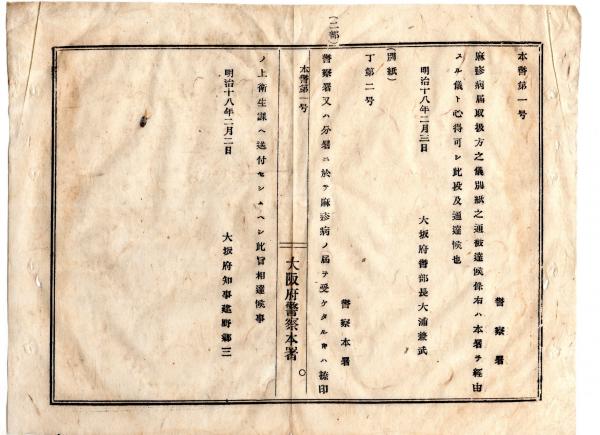 本警第一号
警察署
麻疹病届取扱方之儀別紙之通被達候條右ハ本署ヲ経由
スル儀ト心得可シ此段及通達候也
明治十八年二月三日
大坂府警部長大浦兼武
(別紙)
丁第二号
警察本署
(二部)
警察署又ハ分署ニ於テ麻疹病ノ届ヲ受ケタルトキハ捺印
本警第一号
大阪府警察本署
ノ上衛生課ヘ送付セシムヘシ此旨相達候事
明治十八年二月二日
大坂府知事建野郷三